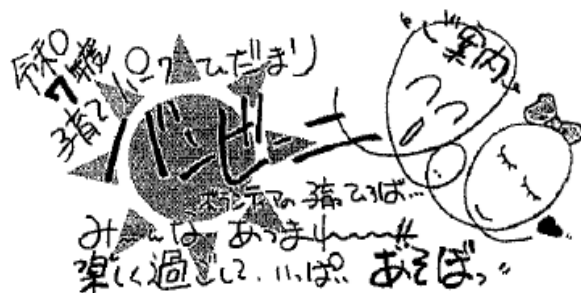 令和7年度
子育てパークひだまり
バンビーニ
ご案内
ボランティアの子育てひろば…
みーんな あつまれ〜〜〜!!
楽しく過ごして、いっぱい あそぼっ"